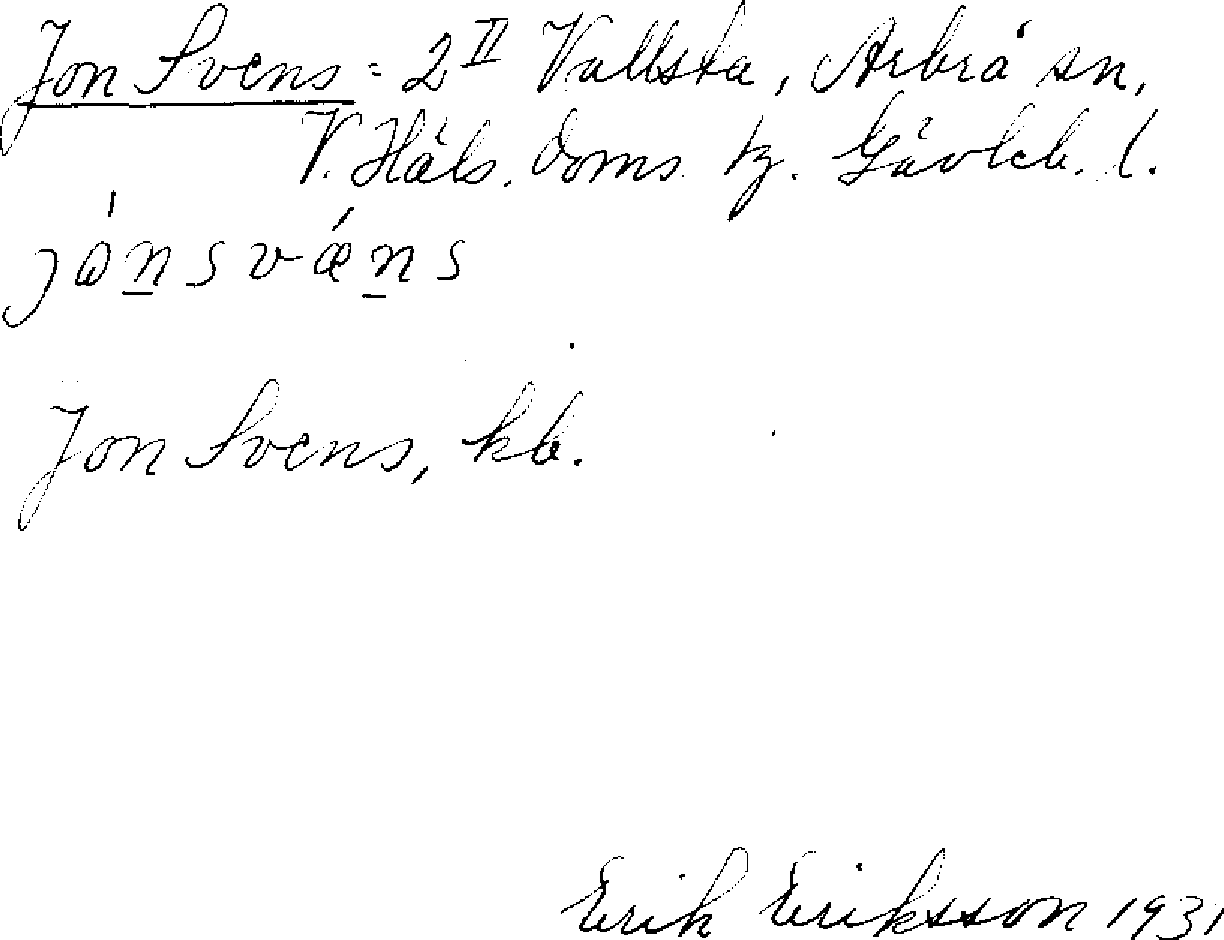 Jon Svens = 2 II Vallsta, Arbrå sn,
V. Häls. doms. tg. Gävleb. l.
jɷ́n̲svǽn̲s
Jon Svens, kb.
Erik Eriksson 1931